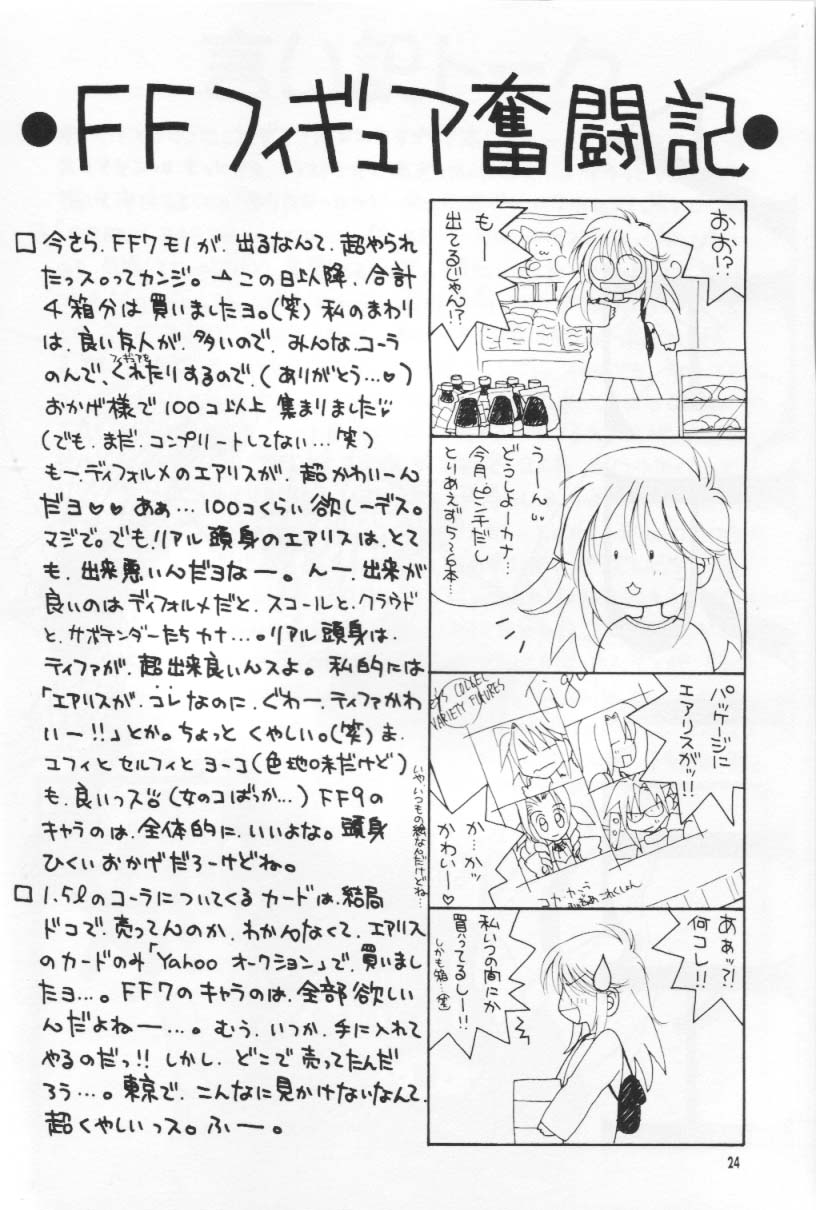 ●FFフィギュア奮闘記●
おお!?
もー
出てるじゃん!?
うーん
どうしよーカナ…
今月ピンチだし
とりあえず5〜6本…
COLLEC
VARIETY FIGURES
パッケージに
エアリスがッ!!
か…かッ
かわいー♡
いや、いつもの絵なんだけどね…
コカ・コーラ
あぁッ?!
何コレ!!
私いつの間にか
買ってるしー!!
しかも箱…(笑)
□今さら、FF7モノが、出るなんて、超やられ
たっス。ってカンジ。→この日以降、合計
4箱分は買いましたヨ。(笑)私のまわり
は、良い友人が、多いので、みんな、コーラ
のんで、フィギュアをくれたりするので、(ありがとう…♡)
おかげ様で100コ以上集まりました
(でも、まだ、コンプリートしてない…笑)
もー、ディフォルメのエアリスが、超かわいーん
だヨ♡♡あぁ…100コくらい欲しーデス。
マジで。でも、リアル頭身のエアリスは、とて
も、出来悪いんだヨなー。んー、出来が
良いのはディフォルメだと、スコールと、クラウド
と、サボテンダーたちカナ…。リアル頭身は、
ティファが、超出来良いんスよ。私的には
「エアリスが、コレなのに、ぐわー、ティファかわ
いー!!」とか。ちょっとくやしい。(笑)ま、
ユフィとセルフィとヨーコ(色地味だけど)
も、良いっス(女のコばっか…)FF9の
キャラのは、全体的に、いいよな。頭身
ひくいおかげだろーけどね。
□1.5ℓのコーラについてくるカードは、結局
ドコで、売ってんのか、わかんなくて、エアリス
のカードのみ「Yahooオークション」で、買いまし
たヨ…。FF7のキャラのは、全部欲しい
んだよねー…。むう、いつか、手に入れて
やるのだっ!!しかし、どこで売ってたんだ
ろう…。東京で、こんなに見かけないなんて、
超くやしいっス。ふー。
24